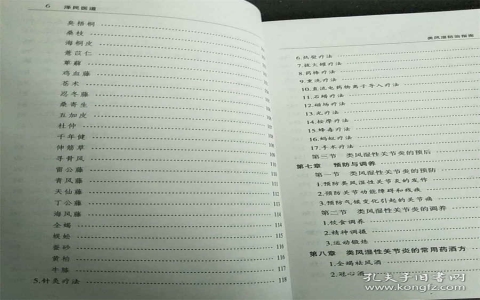 6 痹
臭梧桐
桑枝
海桐皮
薏苡仁
萆薢
鸡血藤
苍术
忍冬藤
桑寄生
五加皮
杜仲
千年健
伸筋草
寻骨风
雷公藤
青风藤
天仙藤
丁公藤
海风藤
全蝎
蜈蚣
蚕砂
黄柏
牛膝
5.针灸疗法
108
109
109
110
110
111
111
112
112
113
113
114
114
115
115
116
117
118
118
类风湿防治指南
6.热熨疗法
7.拔火罐疗法
8.药棒疗法
9.熏洗疗法
10.直流电药物离子导入疗法
11.石蜡疗法
12.磁场疗法
13.光疗法
14.按摩疗法
15.蜂毒疗法
16.蚂蚁疗法
17.手术疗法
第三节 类风湿性关节炎的预后
第七章 预防与调养
第一节 类风湿性关节炎的预防
1.预防类风湿性关节炎的发作
2.预防关节功能障碍和残疾
3.预防气候变化引起的关节痛
第二节 类风湿性关节炎的调养
1.饮食调养
2.精神调摄
3.运动锻炼
第八章 类风湿性关节炎的常用药酒方
1.全蝎祛风酒
2.冠心酒
孔夫子旧书网
www.kongfz.com